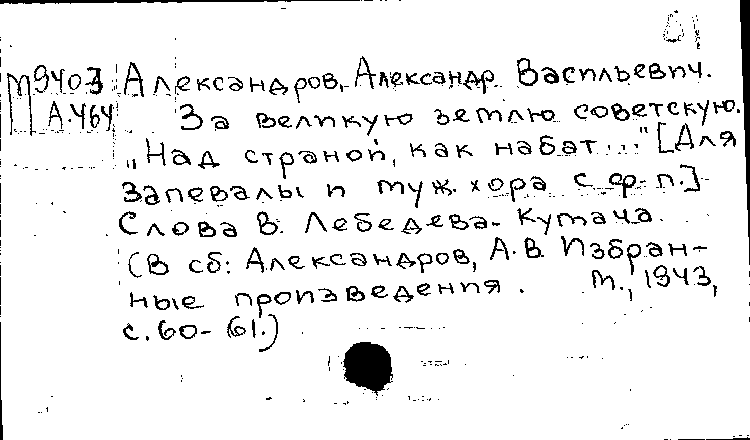 М940-3 Александров, Александр Васильевич.
А.464 За великую землю советскую.
„Над страной, как набат..." [Для
запевалы и муж. хора с ф-п.]
Слова В. Лебедева-Кумача.
(В сб: Александров, А.В. Избран-
ные произведения. М., 1943,
с. 60-61.)